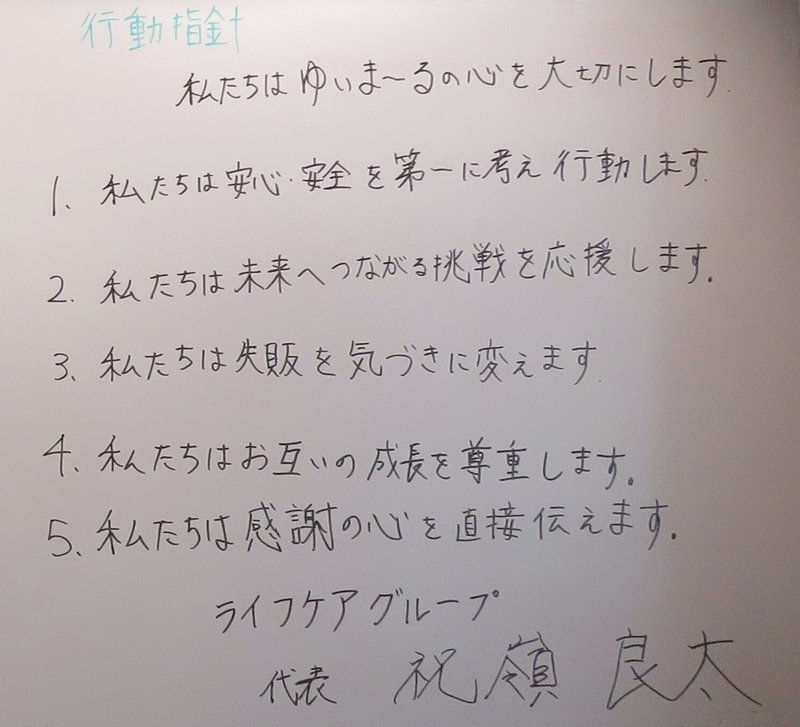 行動指針
私たちはゆいま～るの心を大切にします
1. 私たちは安心・安全を第一に考え行動します.
2. 私たちは未来へつながる挑戦を応援します.
3、私たちは失販を気づきに変えます.
4、私たちはお互いの成長を尊重します。
5、私たちは感謝の心を直接伝えます.
ライフケアグループ
代表 祝嶺 良太